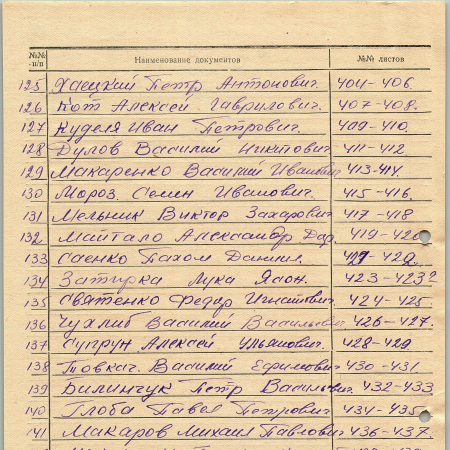 №№ п/п Наименование документов №№ листов
125 Хаецкий Петр Антонович. 404-406.
126 Кот Алексей Гаврилович. 407-408.
127 Куделя Иван Петрович. 409-410.
128 Дулов Василий Никитович 411-412
129 Макаренко Василий Иванович 413-414.
130 Мороз Семен Иванович. 415-416.
131 Мельник Виктор Захарович 417-418
132 Майтало Александр 419-420
133 Саенко Пахом Данил.
134 Затирка Лука Ясон. 423-423
135 Святенко Федор Игнатович. 424-425.
136 Чухлиб Василий Васильевич 426-427.
137 Супрун Алексей Ульянович. 428-429
138 Товкач. Василий Ефимович 430-431
139 Билинчук Петр Васильевич. 432-433
140 Глоба Павел Петрович 434-435
141 Макаров Михаил Павлович 436-437.